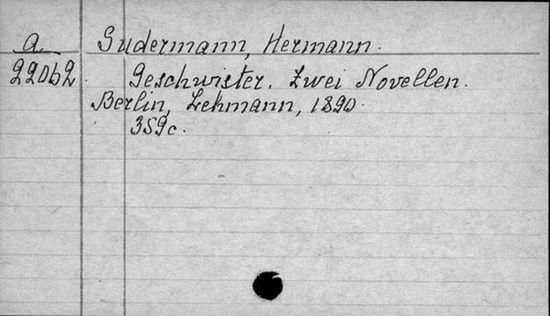 a
22062
Sudermann, Hermann.
Geschwister. Zwei Novellen.
Berlin, Lehmann, 1890.
359c.